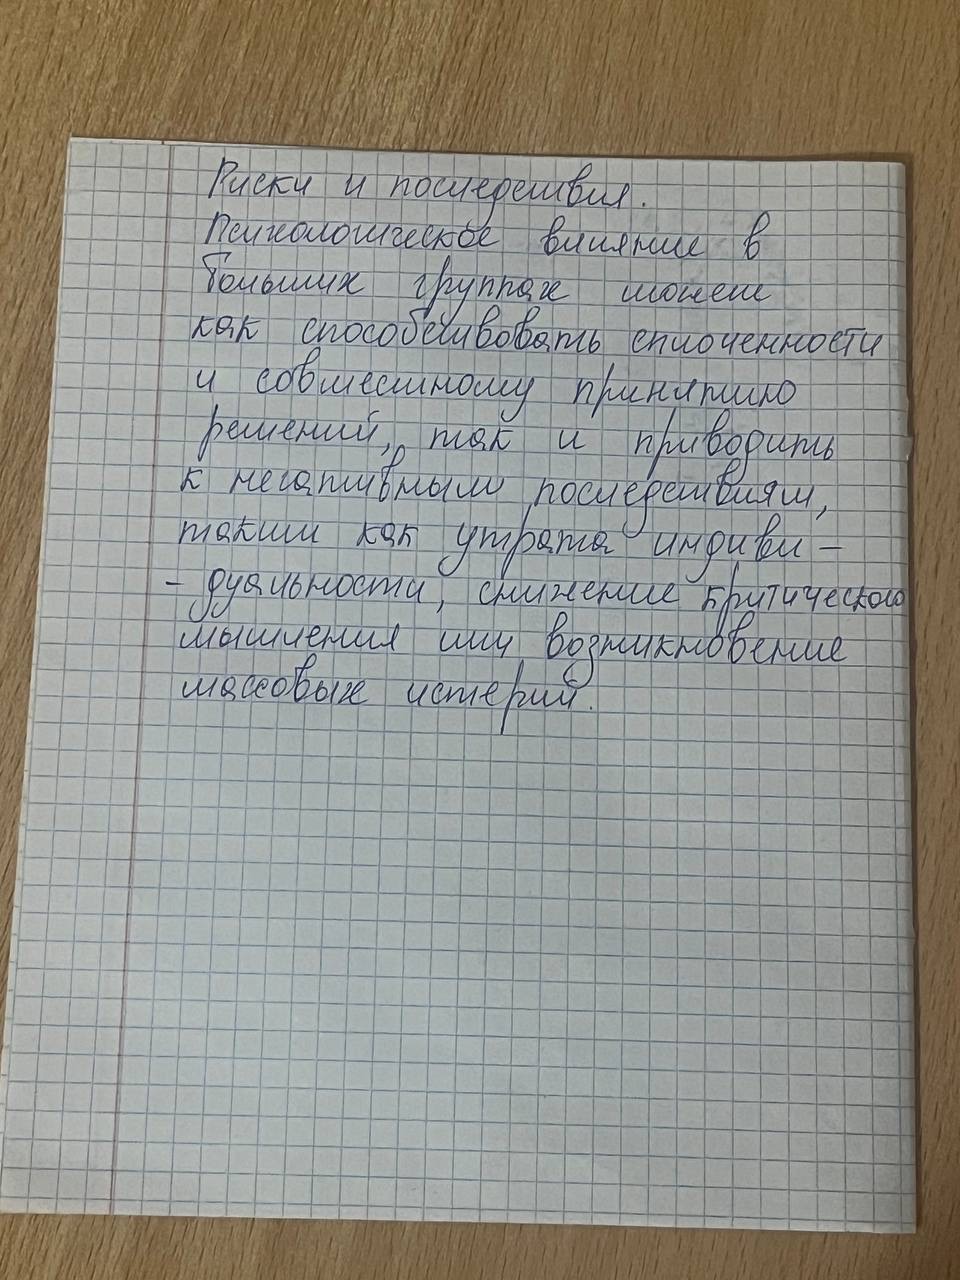 Риски и последствия.
Психологическое влияние в
больших группах может
как способствовать сплоченности
и совместному принятию
решений, так и приводить
к негативным последствиям,
таким как утрата индиви -
- дуальности, снижение критического
мышления или возникновение
массовых истерий.